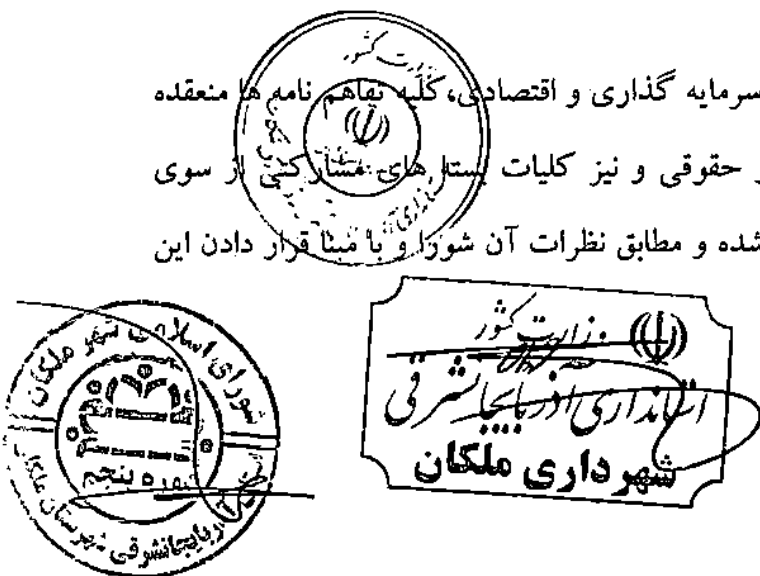 وزارت کشور
سرمایه گذاری و اقتصادی، کلیه تفاهم نامه ها منعقده
حقوقی و نیز کلیات بسته های مشارکتی از سوی
شده و مطابق نظرات آن شورا و با مبنا قرار دادن این
وزارت کشور
استانداری آذربایجانشرقی
شهرداری ملکان
شورای اسلامی شهر ملکان
دوره پنجم
آذربایجانشرقی شهرستان ملکان